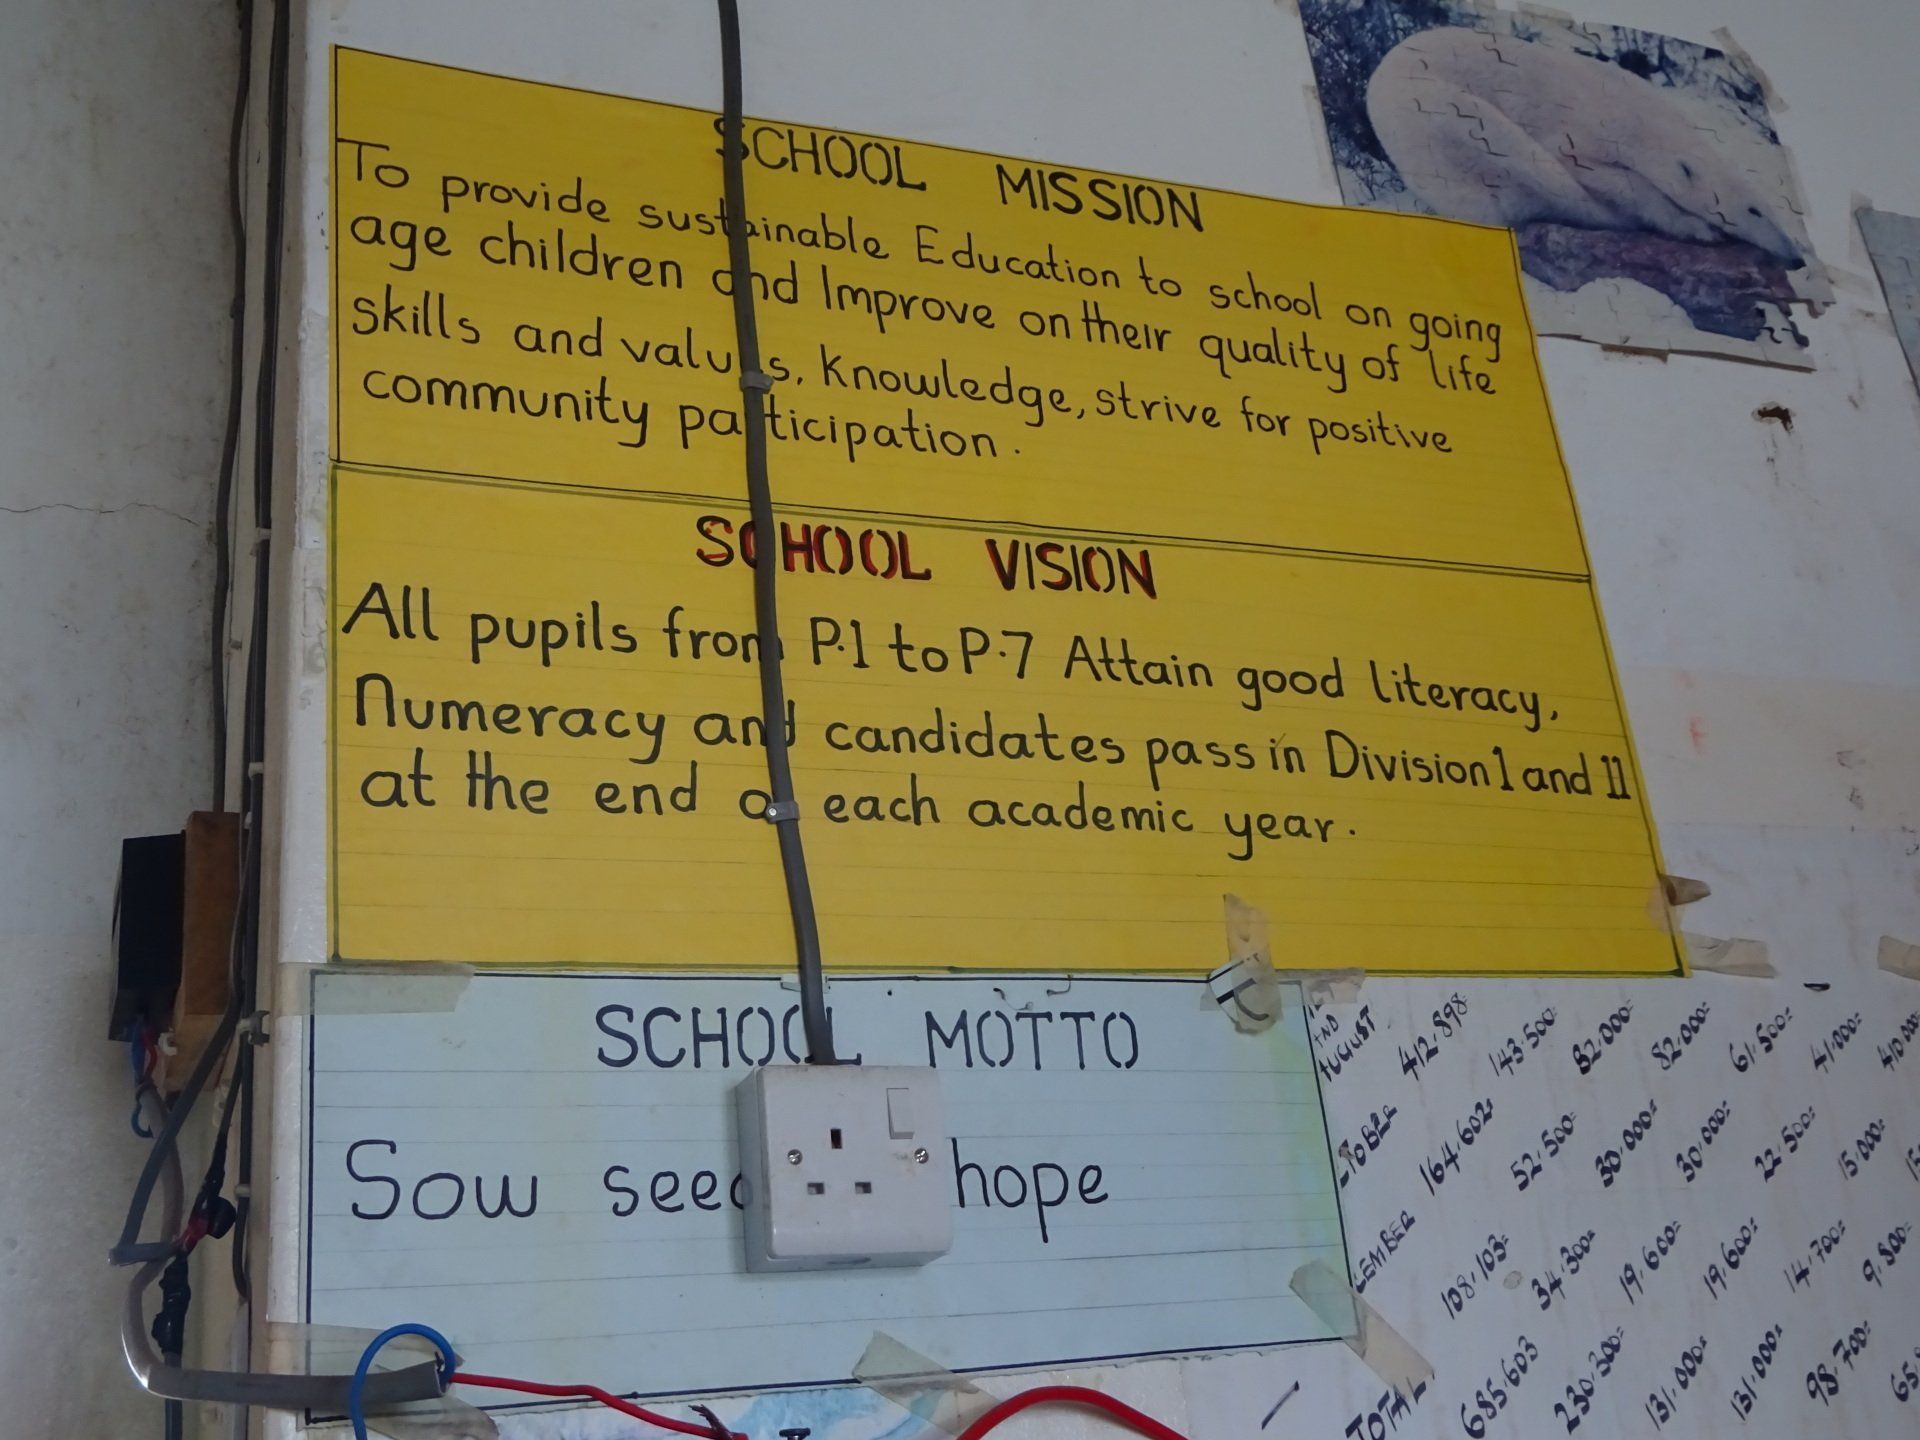 SCHOOL MISSION
To provide sustainable Education to school on going
age children and Improve on their quality of life
skills and values, Knowledge, strive for positive
community participation.
SCHOOL VISION
All pupils from P.1 to P.7 Attain good literacy,
Numeracy and candidates pass in Division 1 and 11
at the end o each academic year.
SCHOOL MOTTO
Sow seed hope
AUGUST 412.898= 143.500= 82.000= 82.000= 61.500= 41.000= 410.000
164.602= 52.500= 30.000= 30.000= 22.500= 15.000=
108.103= 34.300= 19.600= 19.600= 14.700= 9.800=
TOTAL 685.603 230.300= 131.000= 131.000= 98.700=